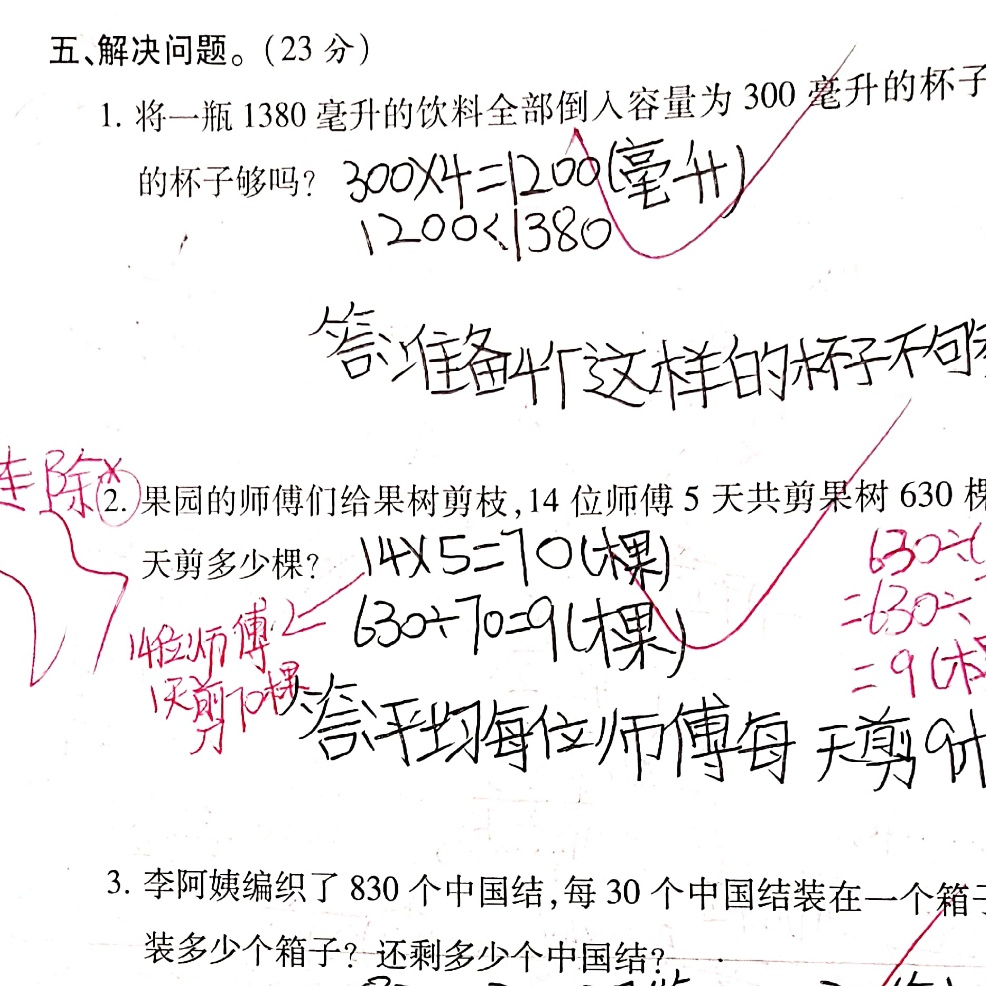 五、解决问题。(23 分)
1. 将一瓶 1380 毫升的饮料全部倒入容量为 300 毫升的杯子
的杯子够吗? 300×4=1200(毫升)
1200<1380
答:准备4个这样的杯子不够
连除
2. 果园的师傅们给果树剪枝,14 位师傅 5 天共剪果树 630 棵
天剪多少棵? 14×5=70(棵)
630÷(
630÷70=9(棵)
=630÷
14位师傅
=9(棵
1天剪70棵
答:平均每位师傅每天剪9
3. 李阿姨编织了 830 个中国结,每 30 个中国结装在一个箱子
装多少个箱子? 还剩多少个中国结?